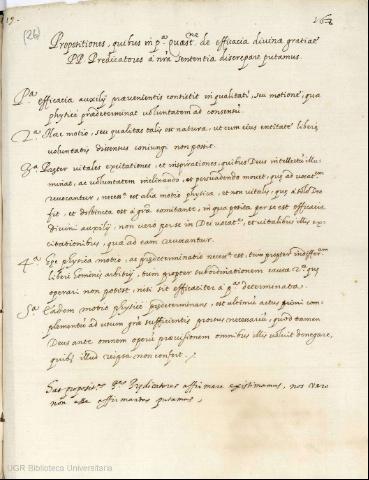 19.
(26)
262
Propositiones, quibus in pª quæstne de efficacia divinæ gratiæ
PP. Predicatores à nrâ sententia discrepare putamus.
Pª efficacia auxilij prævenientis contistit in qualitati, seu motione, qua
physicè prædeterminat voluntatem ad consensū.
2ª Hæc motio, seu qualitas talis est natura, ut cum eius entitate liberi
voluntatis dissensus coniungi non possit.
3ª Præter vitales excitationes, et inspirationes, quibus Deus intellectū illu-
minat, ac voluntatem inclinando, et persuadendo movet, quas ad vocatnem
revocantur, necessª est alia motio physica, et non vitalis, quæ à solo Deo
fit, et distincta est à grâ comitante, in qua posita per se est efficacia
divini auxilij, non vero per se in Dei vocatne, et vitalibus illis ex-
citationibus, quæ ad eam revocantur.
4ª Hæc physica motio, ac prædeterminatio necessª est, tum propter indifferm
liberi hominis arbitrij, tum propter subordinationem causæ 2æ quæ
operari non potest, nisi sit efficaciter à pª determinata.
5ª Eadem motio physicè prædeterminans, est ultimū actus primi com-
plementū ad usum græ sufficientis prorsus necessariū, quod tamen
Deus ante omnem operū prævisionem omnibus illis voluit denegare,
quibus illud reipsa non confert.
Has propositnes PPes Prædicatores affirmare existimamus, nos vero
non esse affirmandas putamus.
UGR Biblioteca Universitaria